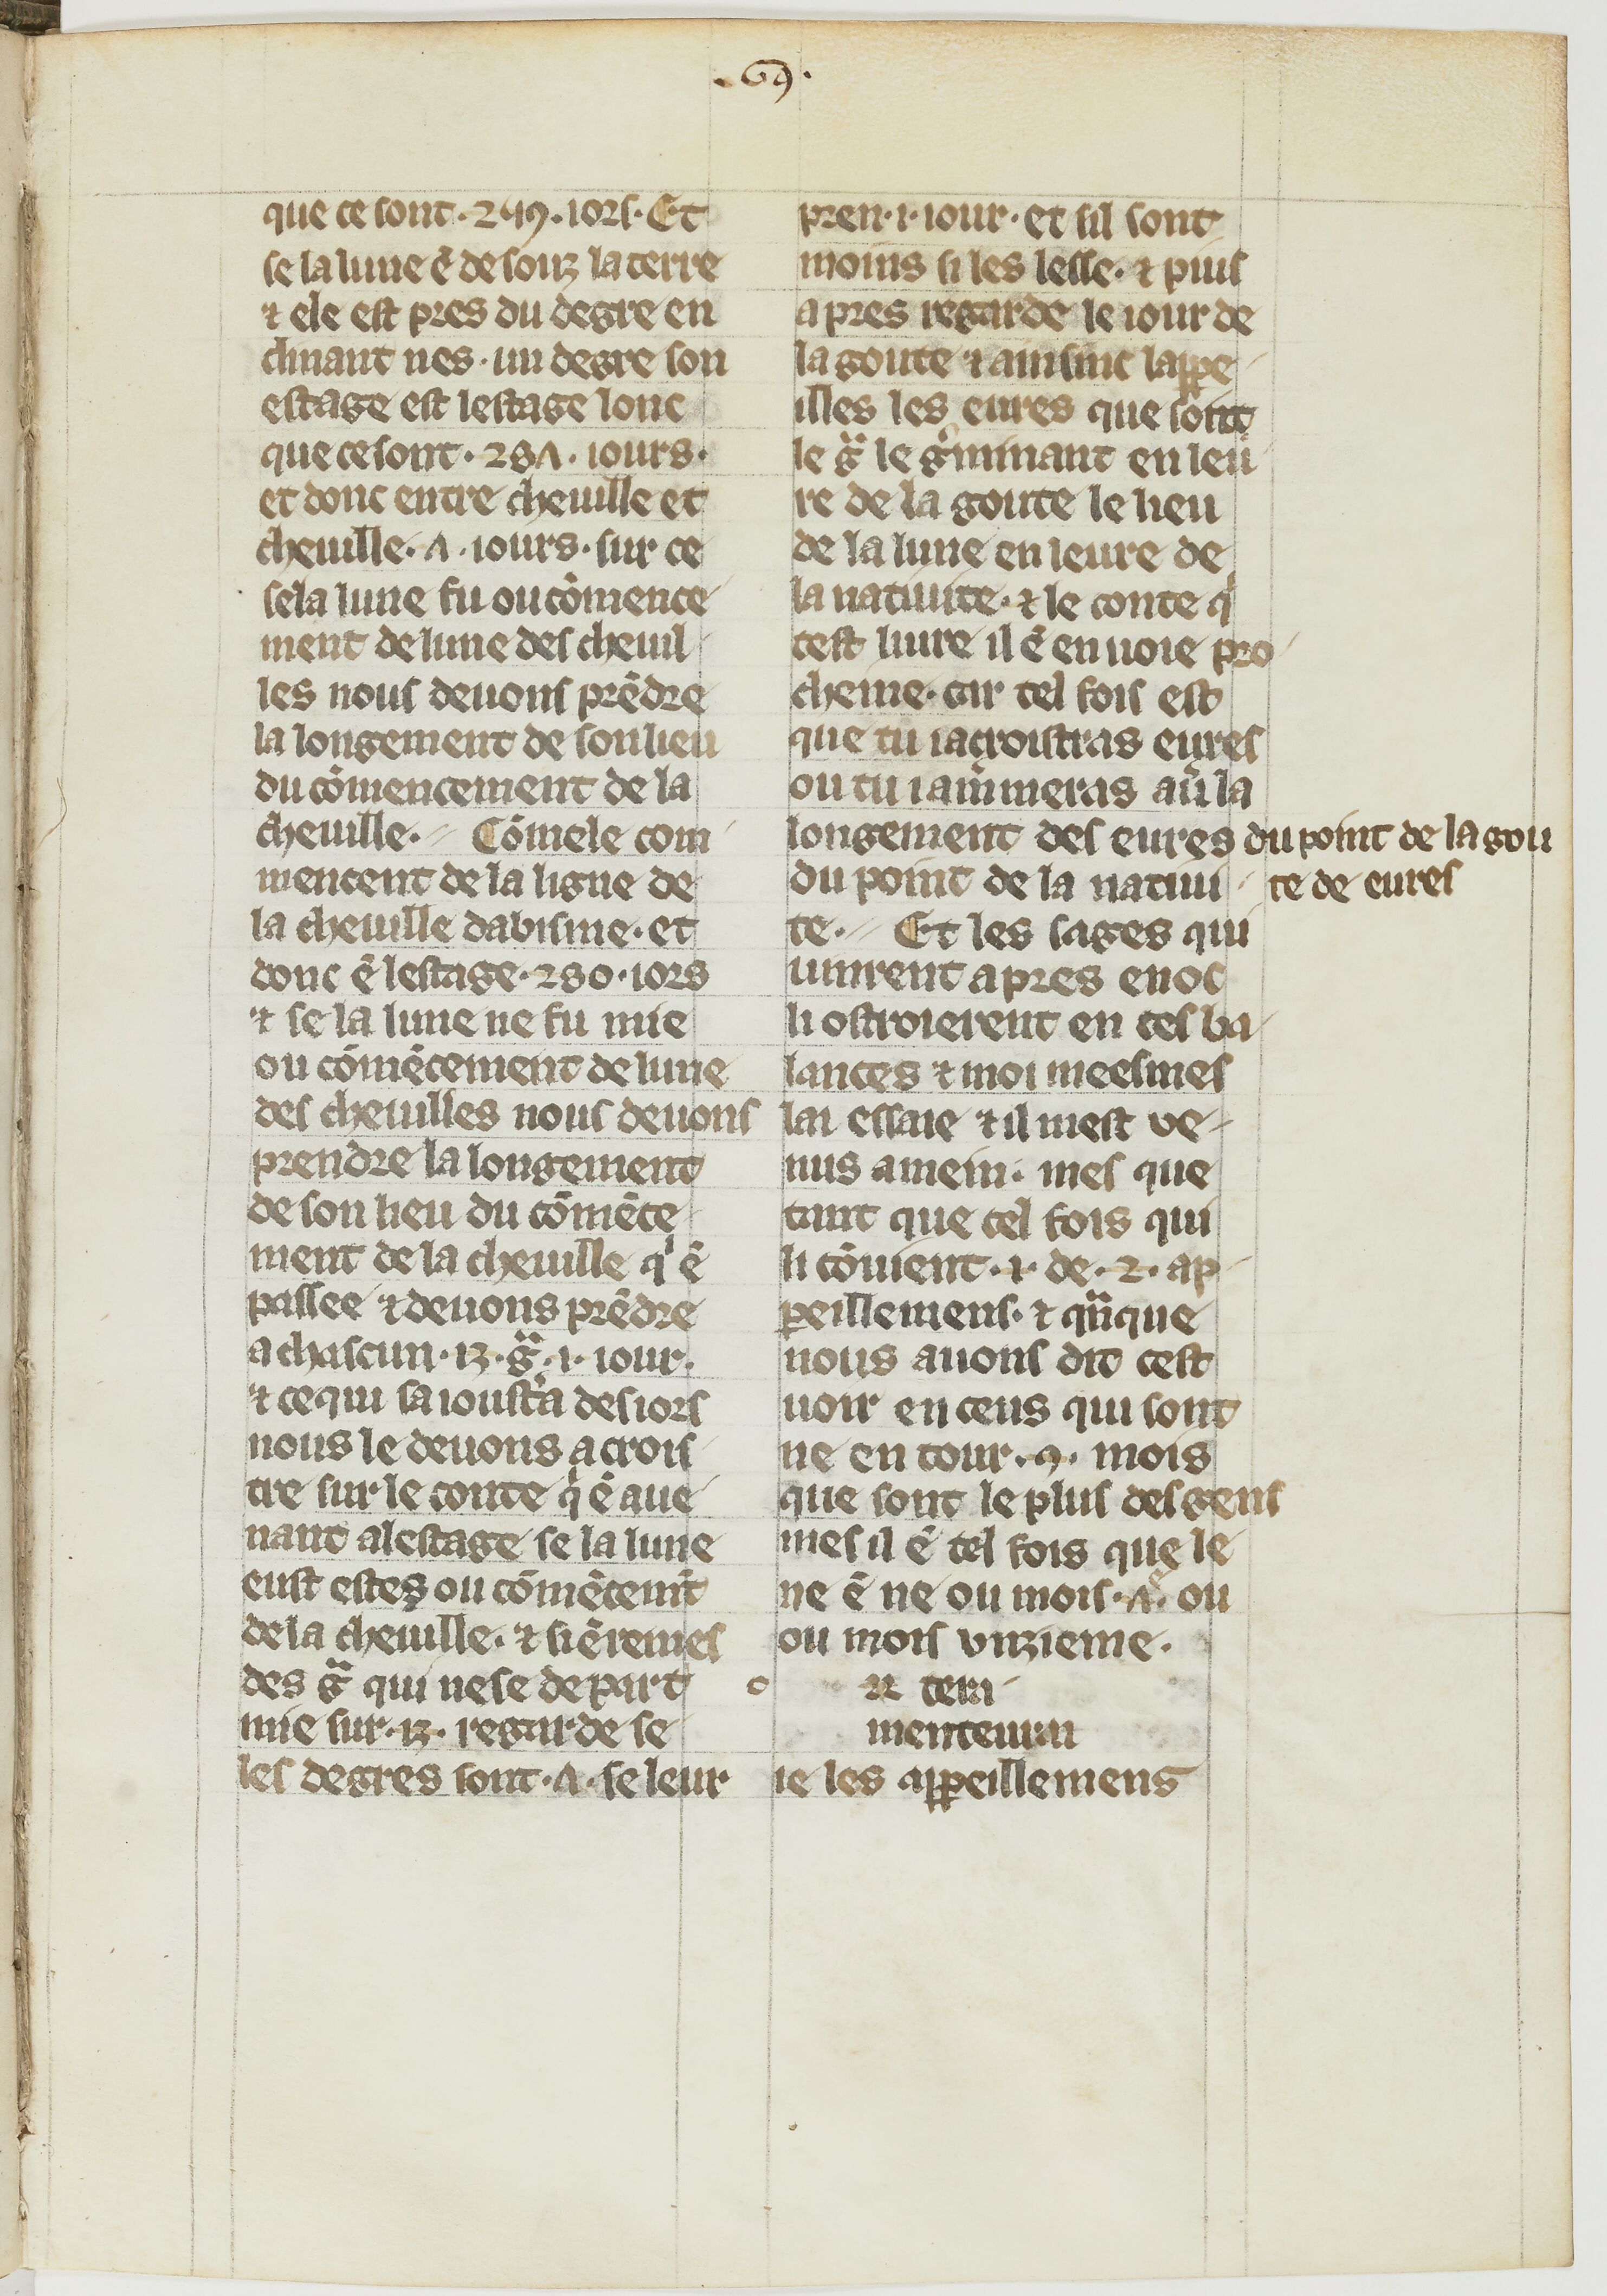 .69.
que ce sont .2 19. iors. Et
se la lune ē de souz la terre
⁊ ele est pres du degre en
clinant nes. un degre son
estage est lestage lonc
que ce sont .28Λ. iours.
et donc entre cheuille et
cheuille .Λ. iours. sur ce
se la lune fu ou cōmence
ment de lune des cheuil
les nous deuons prēdre
la longement de son lieu
du cōmencement de la
cheuille. Cōmele com
mencent de la ligne de
la cheuille dabisme. et
donc ē lestage .280. iors
⁊ se la lune ne fu mie
ou cōmēcement de lune
des cheuilles nous deuons
prendre la longement
de son lieu du cōmēce
ment de la cheuille qͥ ē
passee ⁊ deuons prēdre
a chascun .13. gͣ .1. iour.
⁊ ce qui sa ioustͣa des iors
nous le deuons acrois
tre sur le conte qͥ ē aue
nant a lestage se la lune
eust estes ou cōmēcemt̄
de la cheuille. ⁊ si ē remes
des gͣ qui ne se depart
mie sur .13. regarde se
les degres sont .Λ. se leur
pren .1. iour. et sil sont
moins si les lesse. ⁊ puis
apres regarde le iour de
la goute ⁊ ainsinc lappe
illes les eures que sont
le gͣ le gͥminant en leu
re de la goute le lieu
de la lune en leure de
la natiuite. ⁊ le conte qͥ
cest liure il ē en uoie pro
cheine. car tel fois est
que tu iacroistras eures
ou tu iam̄meras au̾ la
longement des eures du point de la gou
du point de la natiui te de eures
te. Et les sages qui
uinrent apres enoc
li ostroierent en ces ba
lances ⁊ moi meesmes
lai essaie ⁊ il mest ve
nus a mein. mes que
tant que cel fois qui
li cōuient .1. de .2. ap
peillemens. ⁊ qͣnque
nous auons dit cest
uoir en ceus qui sont
ne en tour .9. mois
que sont le plus des gens
mes il ē tel fois que le
ne ē ne ou mois .Λ. ou
ou mois vnzieme.
o
menteuran
ie les appeillemens